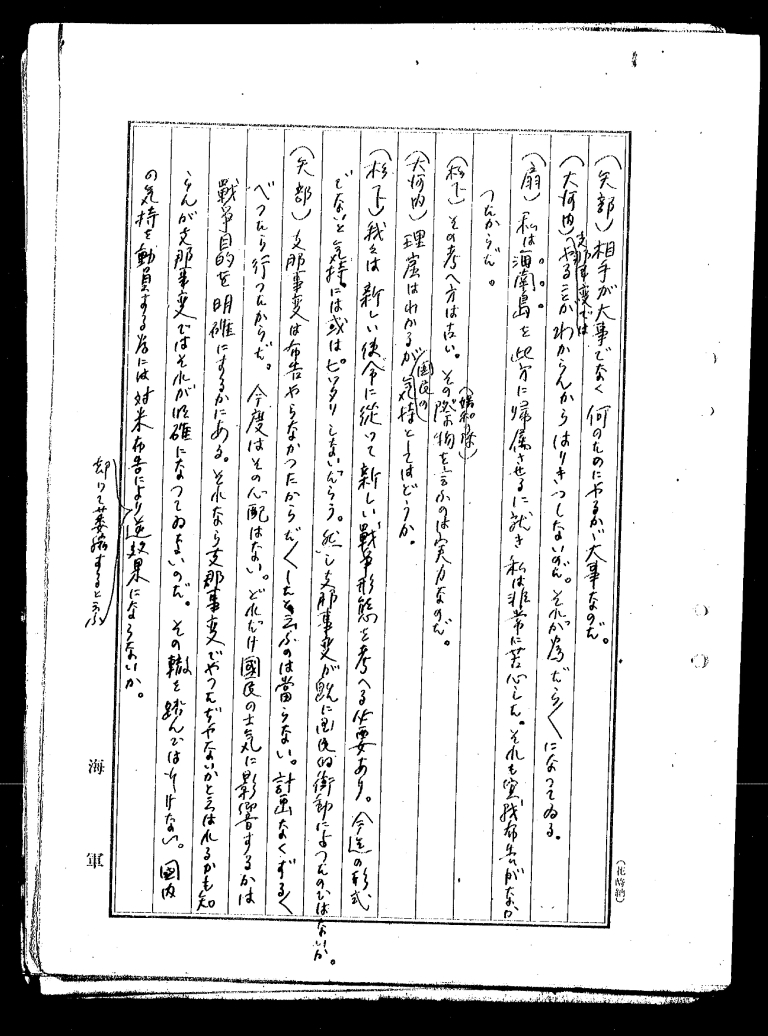 (矢部) 相手が大事でなく何のためにやるかが大事なのだ。
(大河内) 支那事変ではやることがわからんからはりきつしないのだ。それが為だら〱になつてゐる。
(扇) 私は海南島を此方に帰属させるに就き私は非常に苦心した。それも宣戦布告がなか
つたからだ。
(松下) その考へ方は古い。その障物を言ふのは実力なのだ。
(大河内) 理窟はわかるが国民の気持としてはどうか。
(松下) 我々は新しい使命に従つて新しい戦争形態を考へる必要あり。今迄の形式
でないと気持には或はピッタリしないだらう。然し支那事変が既に国民的衝動によつたのではないか。
(矢部) 支那事変は布告やらなかつたからだら〱したと云ふのは當らない。計画なくずる〱
べつたら行つたからだ。今度はその心配はない。どれだけ國民の士気に影響するかは
戰争目的を明確にするかにある。それなら支那事変でやつたぢやないかと云はれるかも知
らんが支那事変ではそれが明確になつてゐないのだ。その轍を踏んではいけない。國内
の気持を動員する為には対米布告により逆効果にならないか。
却りて萎縮すると云ふ
海軍